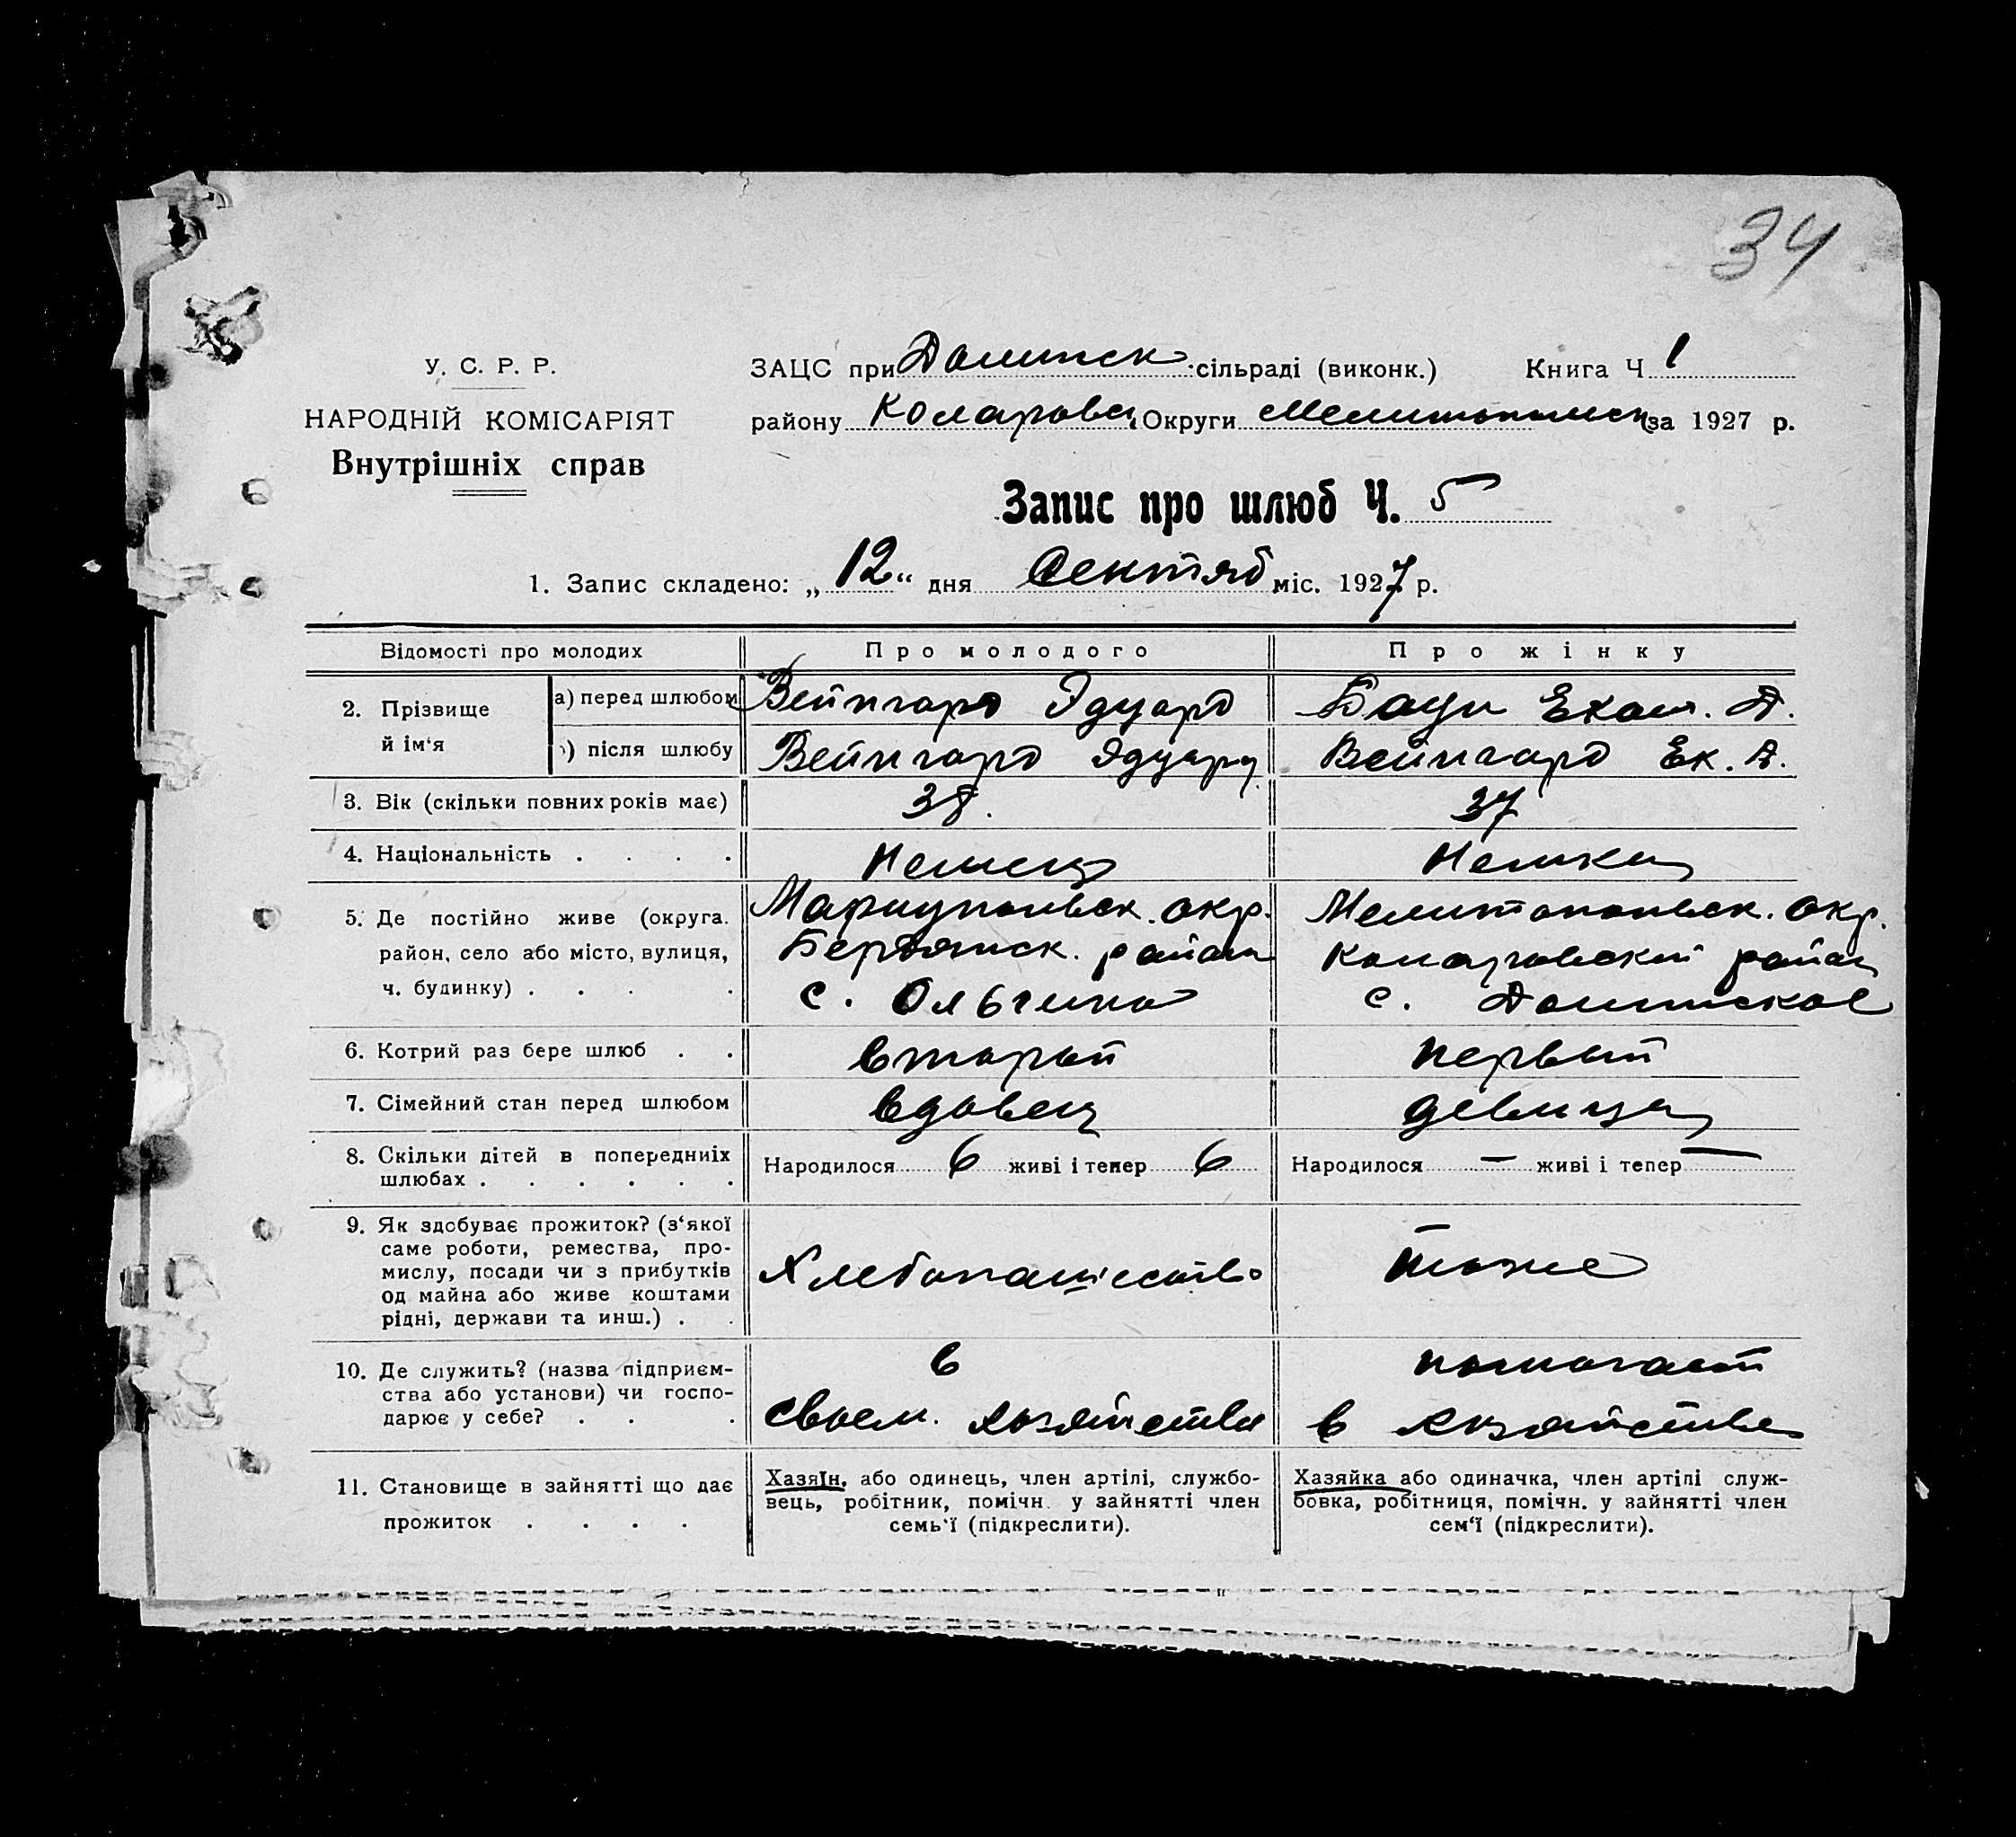 34
У. С. Р. Р.
НАРОДНІЙ КОМІСАРІЯТ
Внутрішніх справ
ЗАЦС при Долинск сільраді (виконк.) Книга Ч 1
району Коларовск Округи Мелитопольск за 1927 р.
Запис про шлюб Ч. 5
1. Запис складено: „12“ дня Сентяб міс. 1927 р.
Відомості про молодих Про молодого Про жінку
2. Прізвище й ім‘я
а) перед шлюбом Вейнгард Эдуард Екат. Д.
б) після шлюбу Вейнгард Эдуард Вейнгард Ек. Д.
3. Вік (скільки повних років має) 38. 37
4. Національність . . . . Немец Немка
5. Де постійно живе (округа. Мариупольск. окр. Мелитопольск. Окр.
район, село або місто, вулиця, Бердянск. район Коларовский район
ч. будинку) . . . . с. Ольгино с. Долинское
6. Котрий раз бере шлюб . . второй первый
7. Сімейний стан перед шлюбом вдовец девица
8. Скільки дітей в попередніх Народилося 6 живі і тепер 6 Народилося — живі і тепер —
шлюбах . . . . . .
9. Як здобуває прожиток? (з‘якої
саме роботи, ремества, про-
мислу, посади чи з прибутків Хлебопашество тоже
од майна або живе коштами
рідні, держави та инш.) . .
10. Де служить? (назва підприєм- в помогает
ства або установи) чи госпо-
дарює у себе? . . . своем. хозяйстве в хозяйстве
11. Становище в зайнятті що дає
прожиток . . . .
Хазяїн, або одинець, член артілі, службо-
вець, робітник, помічн. у зайнятті член
семь‘ї (підкреслити).
Хазяйка або одиначка, член артілі служ-
бовка, робітниця, помічн. у зайнятті член
сем‘ї (підкреслити).